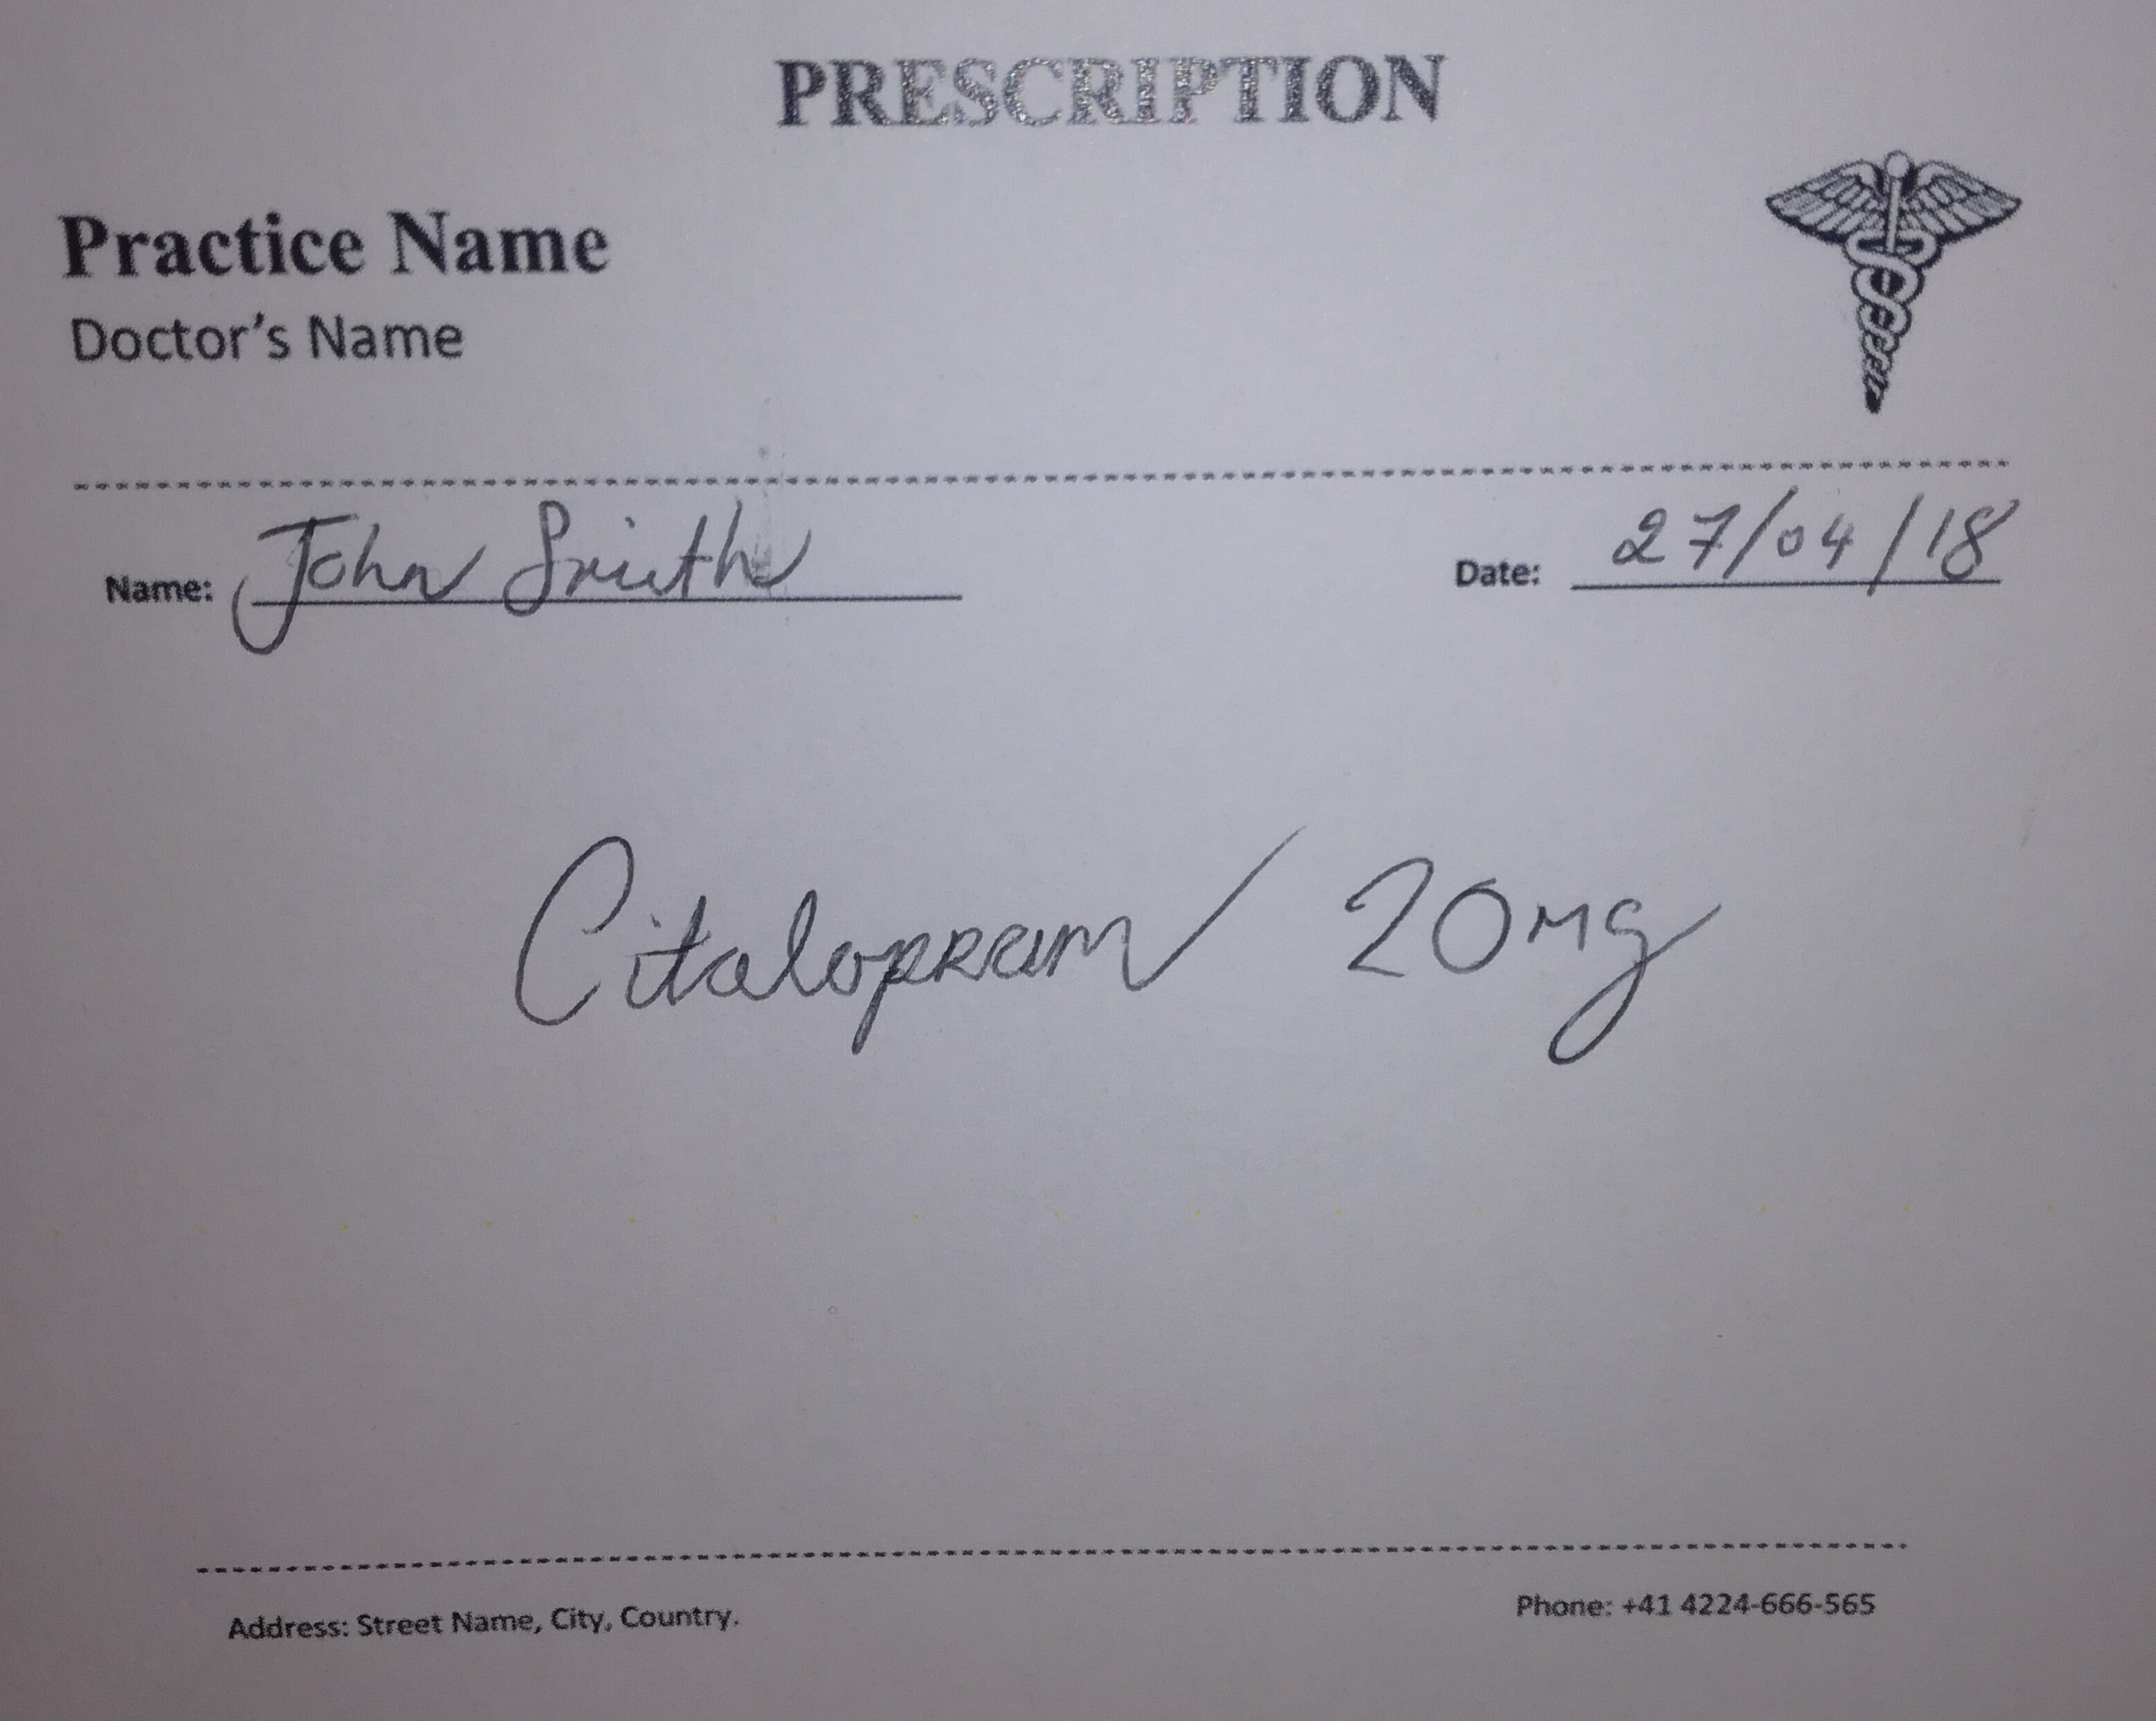 PRESCRIPTION
Practice Name
Doctor's Name
Name: John Smith Date: 27/04/18
Citalopram 20mg
Address: Street Name, City, Country. Phone: +41 4224-666-565